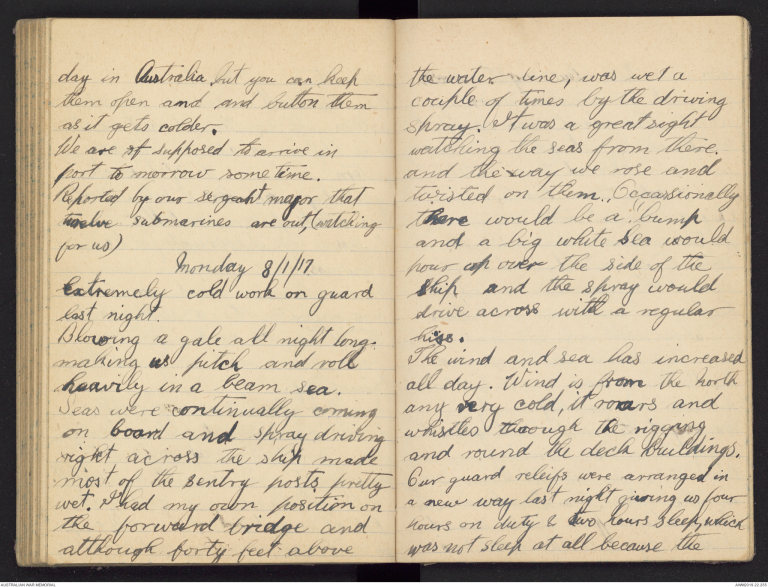 day in Australia but you can keep
them open and and button them
as it gets colder.
We are supposed to arrive in
port to morrow some time.
Reported by our sergeant major that
twelve submarines are out, (watching
for us)
Monday 8/1/17
Extremely cold work on guard
last night.
Blowing a gale all night long.
making us pitch and roll
heavily in a beam sea.
Seas were continually coming
on board and spray driving
right across the ship made
most of the sentry posts pretty
wet. I had my own position on
the forward bridge and
although forty feet above
the water line, was wet a
couple of times by the driving
spray. It was a great sight
watching the seas from there.
and the way we rose and
twisted on them. Occassionally
there would be a bump
and a big white sea would
pour up over the side of the
ship and the spray would
drive across with a regular
hiss.
The wind and sea has increased
all day. Wind is from the north
any very cold, it roars and
whistles through the rigging
and round the deck buildings.
Our guard releifs were arranged in
a new way last night giving us four
hours on duty & two hours sleep, which
was not sleep at all because the
AUSTRALIAN WAR MEMORIAL